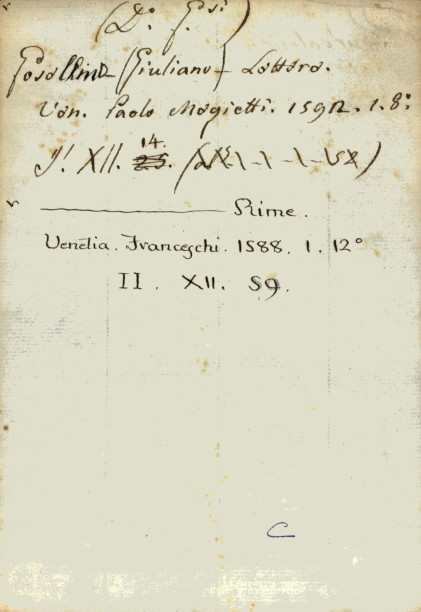 (D. Gesi)
Gosellini (Giuliano) Lettere.
Ven. Paolo Megietti. 1592. 1. 8º
J! XII. 14.
——— Rime.
Venetia. Franceschi. 1588. 1. 12º
II. XII. 59.
C